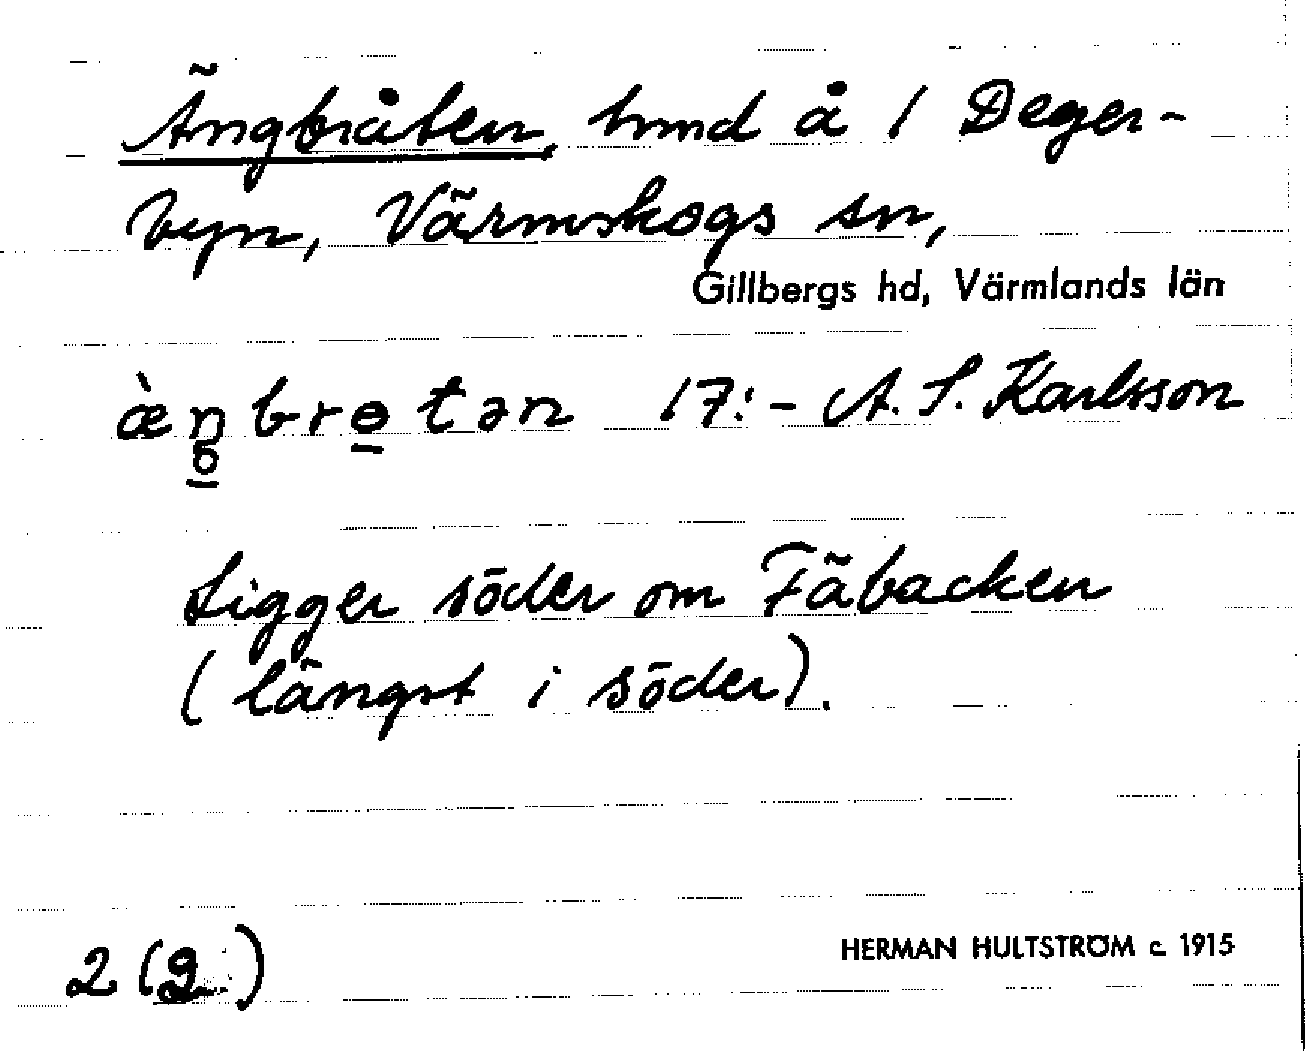 Ängbråten, hmd å 1 Deger-
byn, Värmskogs sn,
Gillbergs hd, Värmlands län
æ̀ŋbrɵtən 17:- A. S. Karlsson
Ligger söder om Fäbacken
(längst i söder).
2 (2)
HERMAN HULTSTRÖM c. 1915